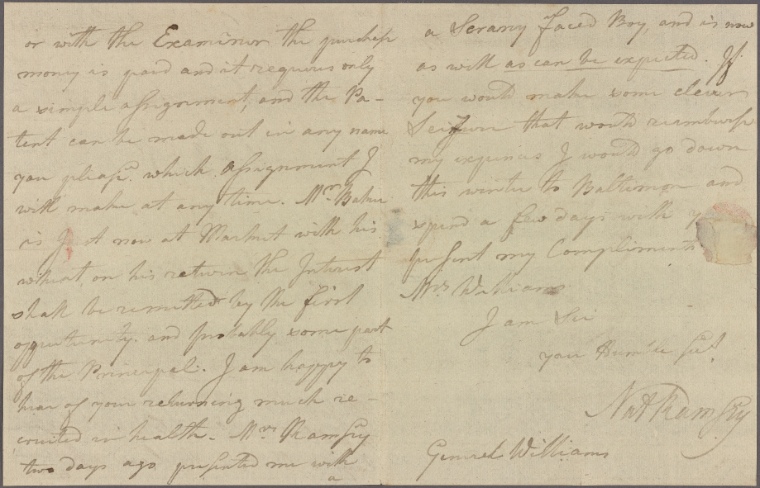 or with the Examiner the purchase
money is paid and it requires only
a simple assignment, and the Pa-
tent can be made out in any name
you please. which assignment I
will make at any time. Mr. Baker
is just now at Market with his
wheat on his return the Interest
shall be remitted by the first
oppertunity. and probably some part
of the Principal. I am happy to
hear of your returning much re-
cruited in health. Mrs Ramsey
two days ago presented me with
a
a Scrany faced Boy, and is now
as well as can be expected. If
you would make some clever
Seizure that would reamburse
my expences I would go down
this winter to Baltimore and
spend a few days with
present my Compliments
Mrs Williams
I am Sir
your Humble Sert.
Nat Ramsey
General Williams